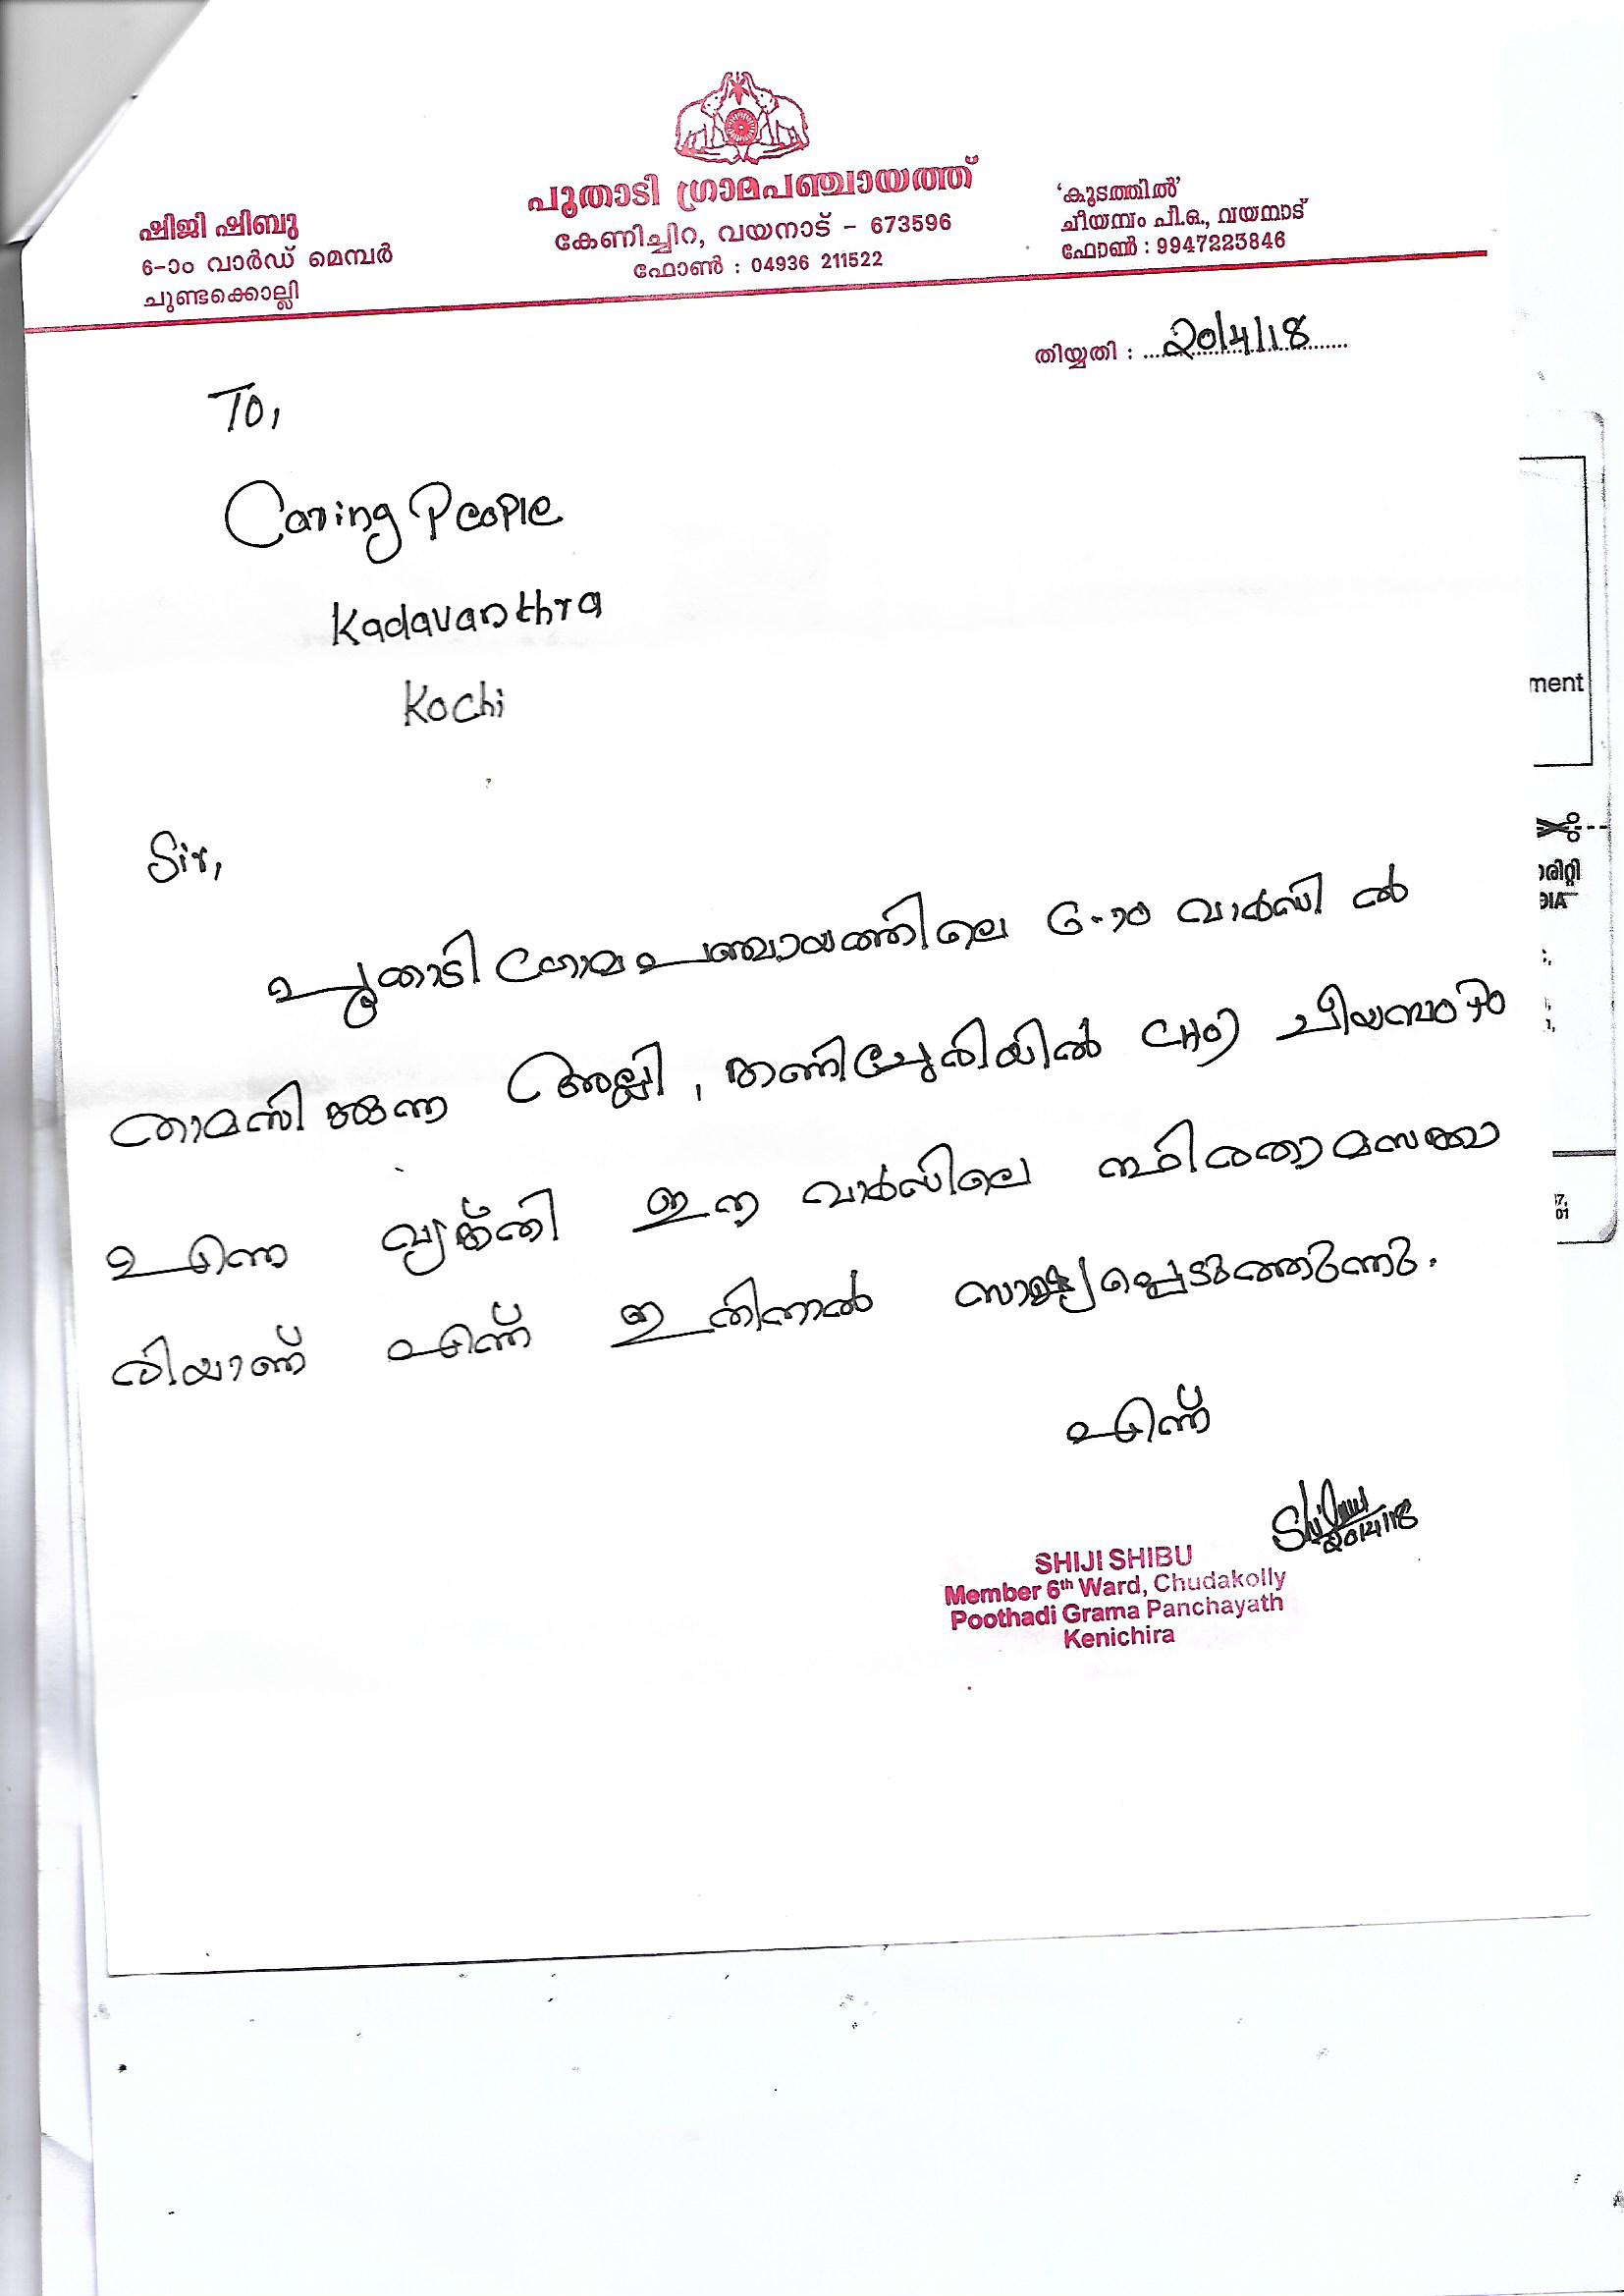 പൂതാടി ഗ്രാമപഞ്ചായത്ത്
കേണിച്ചിറ, വയനാട് - 673596
ഫോൺ : 04936 211522
ഷിജി ഷിബു
6-ാം വാർഡ് മെമ്പർ
ചുണ്ടക്കൊല്ലി
'കൂടത്തിൽ'
ചീയമ്പം പി.ഒ., വയനാട്
ഫോൺ : 9947223846
തിയ്യതി : 20/4/18
To,
Caring People
Kadavanthra
Kochi
Sir,
പൂതാടി ഗ്രാമപഞ്ചായത്തിലെ 6-ാം വാർഡിൽ
താമസിക്കുന്ന ചീയമ്പം
എന്ന വ്യക്തി ഈ വാർഡിലെ സ്ഥിരതാമസക്കാ
രിയാണ് എന്ന് ഇതിനാൽ സാക്ഷ്യപ്പെടുത്തുന്നു.
എന്ന്
20/4/18
SHIJI SHIBU
Member 6th Ward, Chudakolly
Poothadi Grama Panchayath
Kenichira
ment